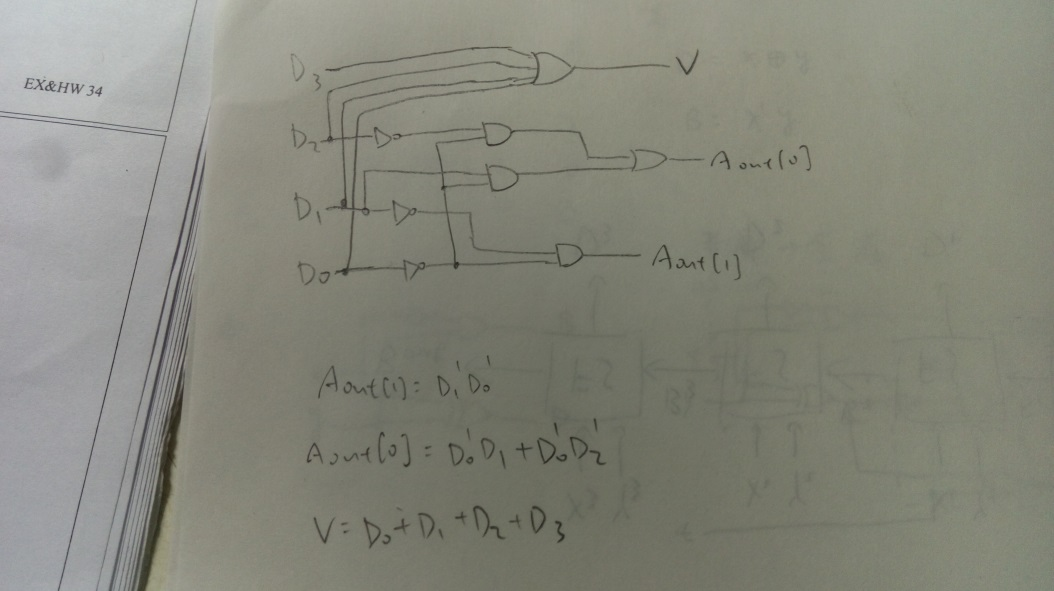 EX&HW 34
D3
V
D2
Aout[0]
D1
D0
Aout[1]
Aout[1] = D1'D0'
Aout[0] = D0'D1 + D0'D2'
V = D0 + D1 + D2 + D3